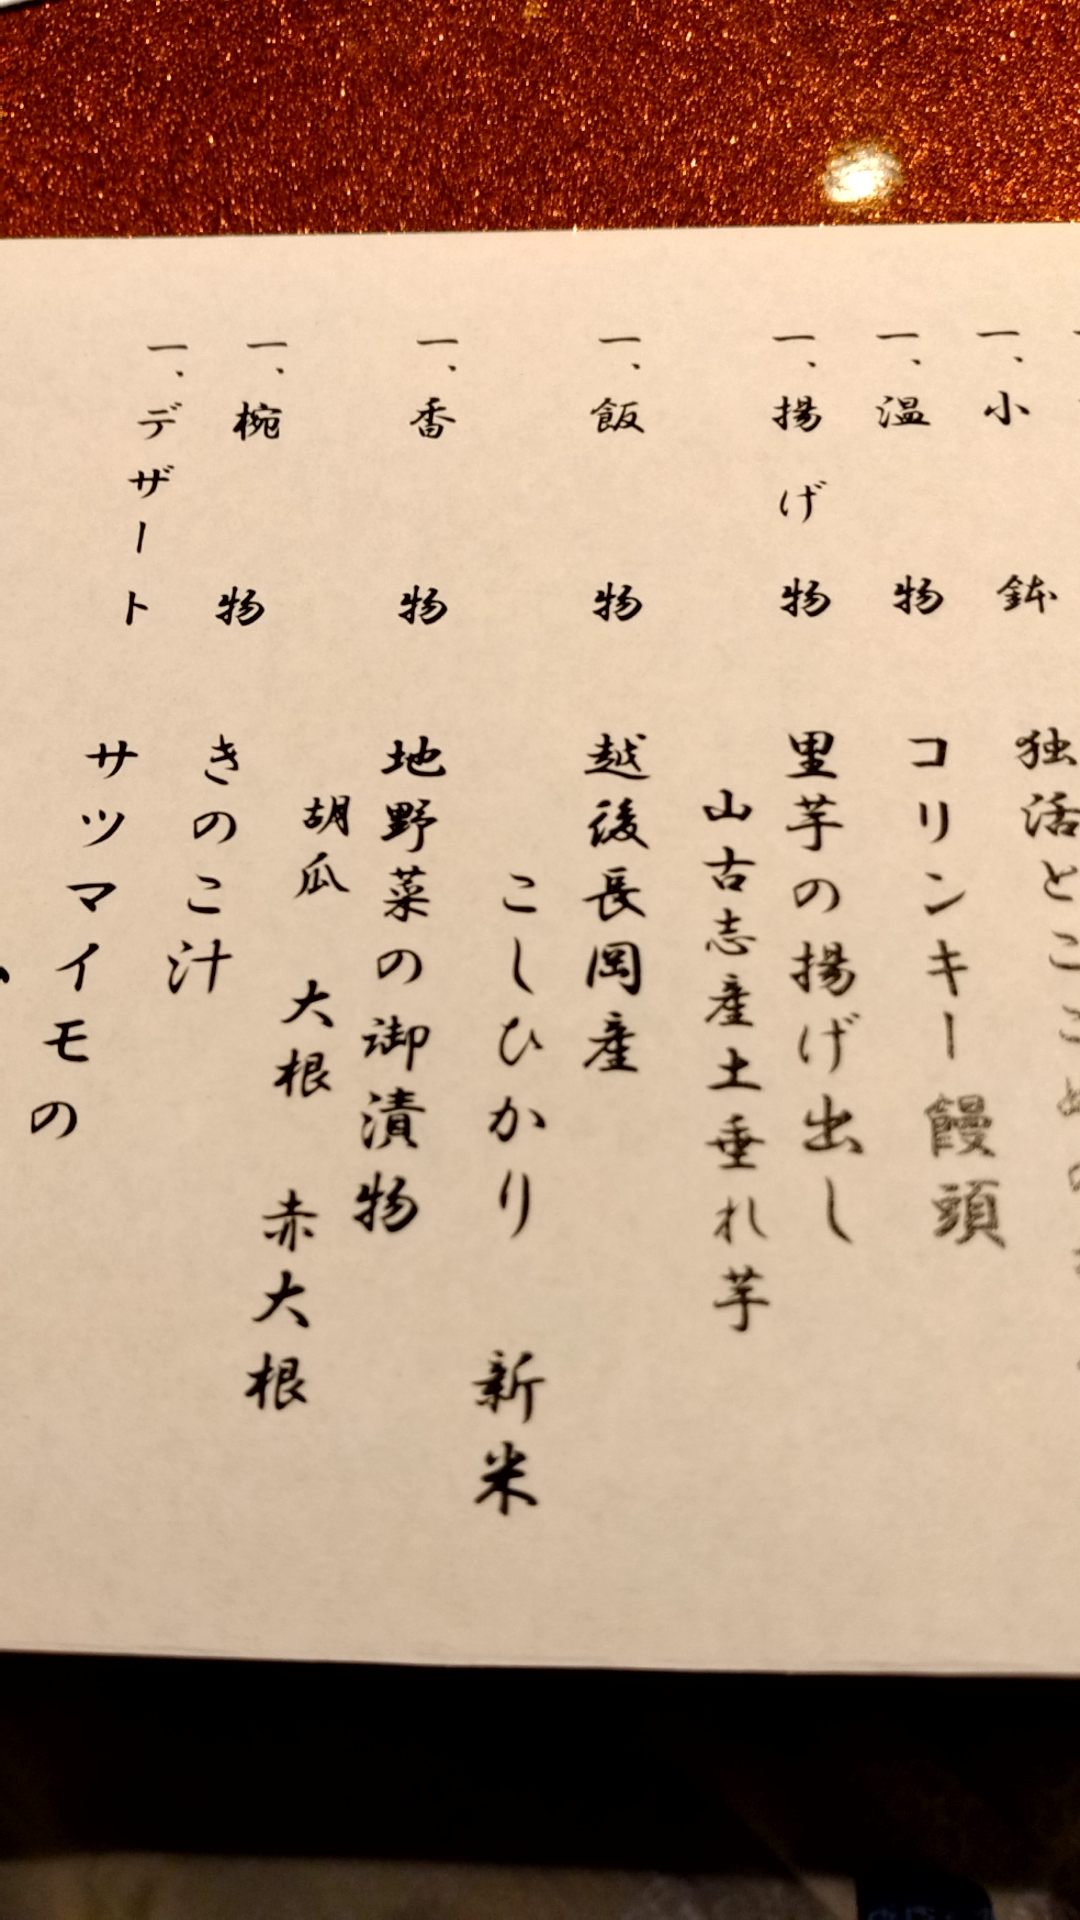 一、小鉢 独活とこごめの
一、温物 コリンキー饅頭
一、揚げ物 里芋の揚げ出し
山古志産土垂れ芋
一、飯物 越後長岡産
こしひかり 新米
一、香物 地野菜の御漬物
胡瓜 大根 赤大根
一、椀物 きのこ汁
一、デザート サツマイモの